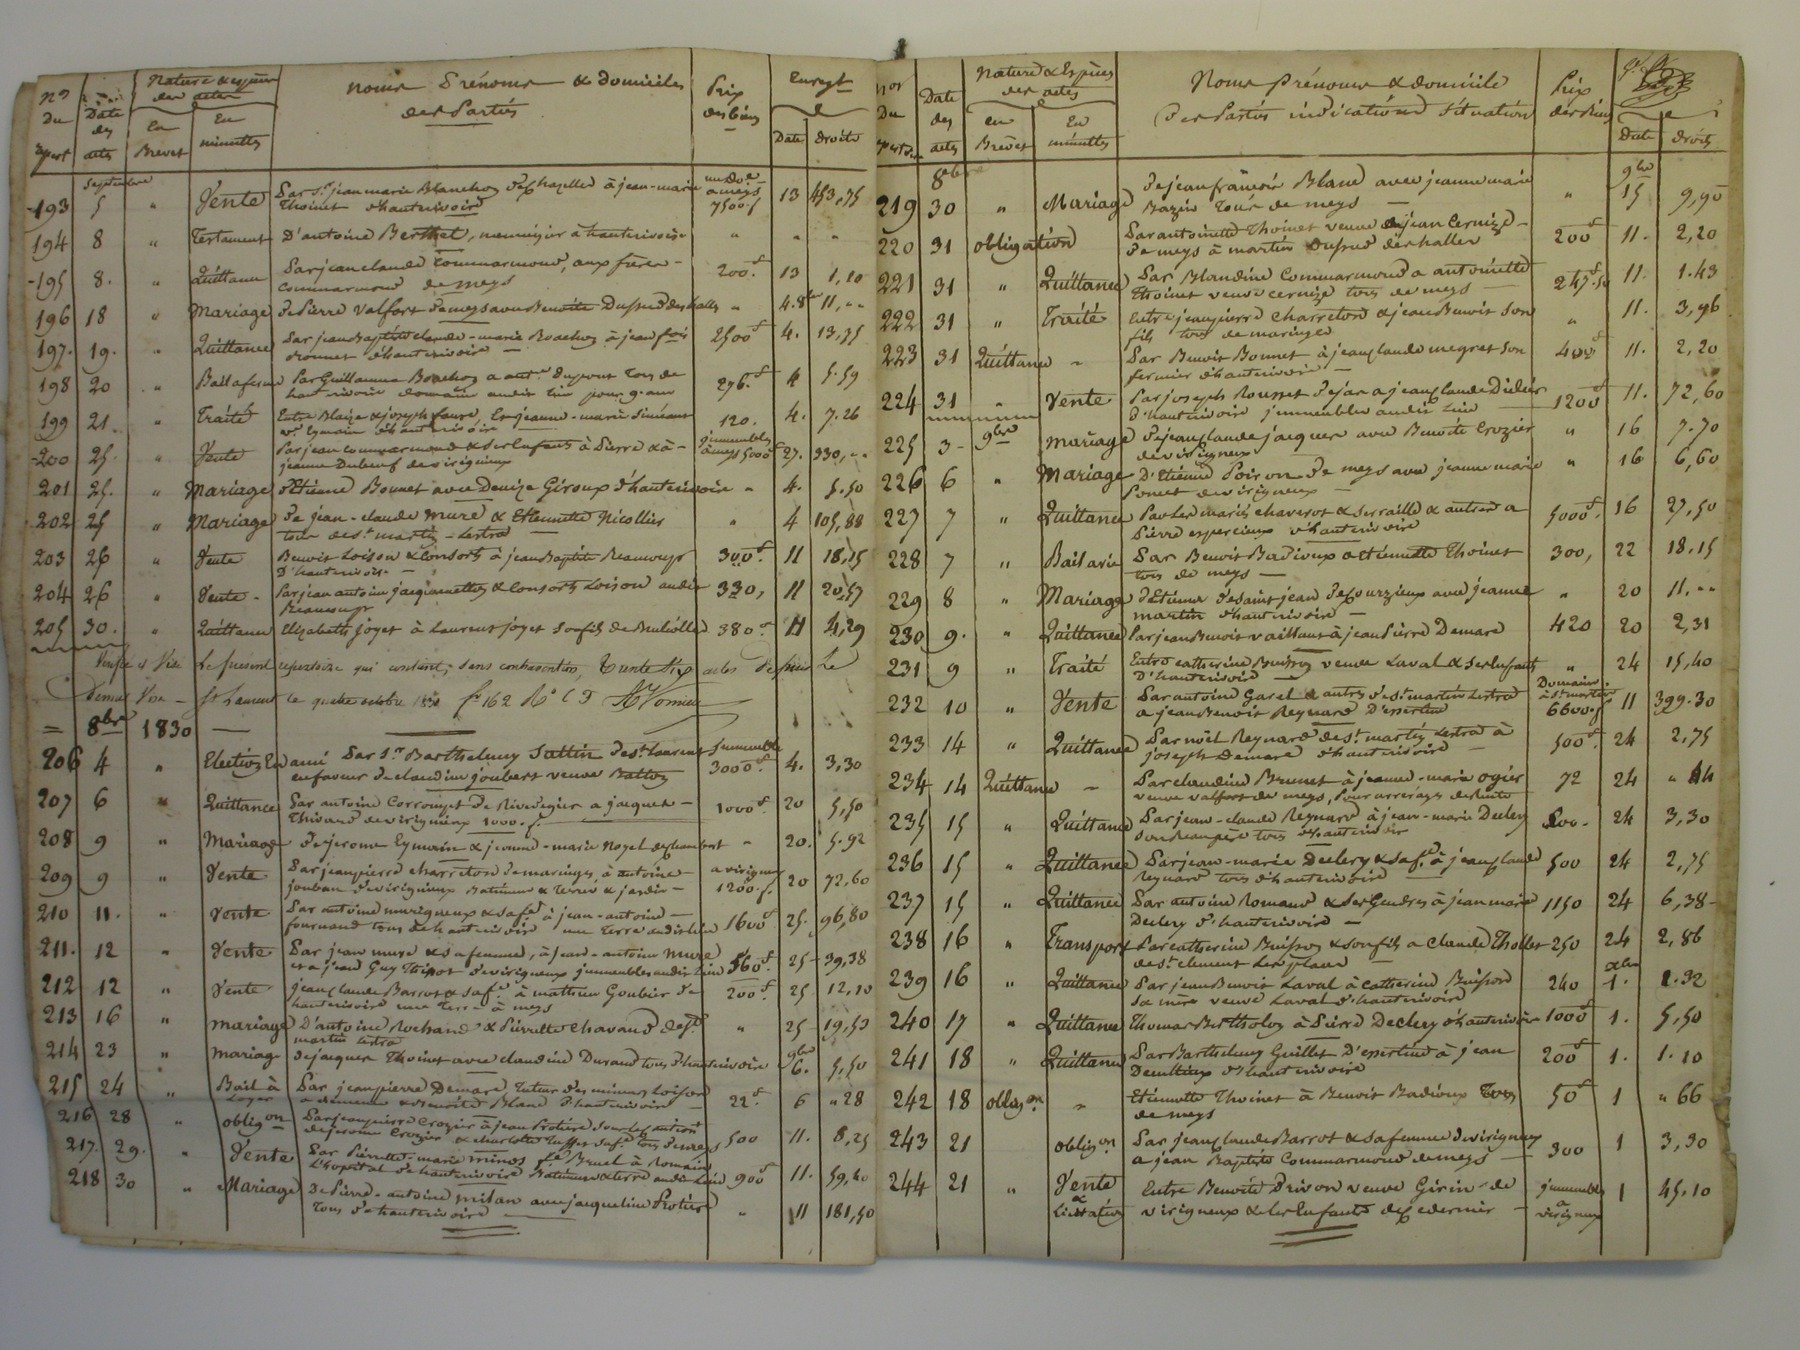 Nos Du Répert.
Date des actes
Nature & espèces des actes
En Brevet
En minuttes
Noms Prénoms & domiciles
des Parties
Prix des biens
Enregt
Date droits
Septembre
193 5 " Vente Par Sr jean marie Blanchon de Chazelles à jean-marie
Thoinet d'hauterivoire
à meys 7500 f 13 453,75
194 8 " Testament D'antoine Berthet, menuizier à hauterivoire " " "
195 8. " Quittance Par jean claude Commarmond, aux frères
Commarmond de meys
200 f. 13 1,10
196 18 " Mariage De Pierre Valfort de meys avec Benoite Dussud des halles " 4.8bre 11,--
197. 19. " Quittance Par jean Baptiste claude-marie Boachon à jean fois
d'hauterivoire
2500 f 4. 13,75
198 20 " Bail a ferme Par Guillaume Boachon a ant.e Dupont Tous de
hauterivoire domaine audit lieu pour 9. ans
276. f 4 5.59
199 21. " Traité Entre Blaize & joseph faure, & jeanne-marie
ve Eymain d'hauterivoire
120. 4. 7.26
200 25. " Vente Par jean commarmond & ses Enfants à Pierre & à
jeanne Duboeuf de virigneux
immeubles à meys 5000 f 27. 330,--
201 25. " Mariage d'Etienne Bonnet avec Denize Giroux d'hauterivoire " 4. 5.50
202 25 " Mariage de jean-claude Mure & Etiennette Nicollier
tous de st martin-Lestra
" 4 105,88
203 26 " Vente Benoit Loison & Consorts à jean Baptiste Beaucoup
D'hauterivoire
300 f. 11 18,15
204 26 " Vente Par jean antoine jacquemetton & Consorts Loison audit
Beaucoup
330, 11 20,57
205 30. " Quittance Elizabeth joyet à Laurent joyet son fils de Brullioles 380 f 11 4,29
Vérifié et Visé Le présent répertoire qui contient, sans contravention, Trente Six actes depuis Le
Dernier Visa St Laurent le quatre octobre 1830 fo 162 Ro C 3
= 8bre 1830
206 4 " Election En ami Par Sr Barthelemy Sattin de st Laurent
en faveur de claudine joubert veuve Batton
immeubles 3000 f. 4. 3,30
207 6 " Quittance Par antoine Corrompt de Riverie a jacques
Thivard de virigneux 1000. f.
1000 f 20 5,50
208 9 " Mariage De jerome Eymain & jeanne-marie Noyel de chambost " 20. 5.92
209 9 " Vente Par jean pierre charreton de maringes, à antoine
jouban de virigneux Batiment & terres & jardin
a virigneux 1200. f. 20 72,60
210 11. " Vente Par antoine murigneux & sa fe à jean-antoine
fournand tous de hauterivoire une terre audit lieu
1600 f 25. 96,80
211. 12 " Vente Par jean mure & sa femme, à jean-antoine Mure
et a jean Guy Thivot de virigneux immeubles audit lieu
560 f. 25 39,38
212 12 " Vente jean claude Barrot & sa fe. à mathieu Goubier de
hauterivoire une terre à meys
200 f. 25 12,10
213 16 " Mariage D'antoine Rochand & Pierrette Chavand de st
martin Lestra
" 25 19,53
214 23 " Mariage De jacques Thoinet avec claudine Durand tous d'hauterivoire 9bre 6. 5,50
215 24 " Bail à Loyer Par jean pierre Demare Tuteur des mineurs Loison
a Benoite Blanc d'hauterivoire
22. f 6 " 28
216 28 " obligon Par jean pierre Crozier à jean Protiere
de jerome Crozier & charlotte sa fe. tous de meys
500 11. 8,25
217. 29. " Vente Par Pierrette-marie minos fe Bruel à Romain
L'hopital d'hauterivoire Batiment & terre audit Lieu
900 f 11. 59,40
218 30 " Mariage De Pierre-antoine milan avec jacqueline Protiere
tous d'hauterivoire
" 11 181,50
Nos Du
Date des actes
Nature & Espèces des actes
en Brevèt
En minuttes
Noms prénoms & domicile
des Parties indication & Situation
Prix des Biens
Date droits
8bre
219 30 " Mariage De jean françois Blanc avec jeanne marie
Bazin Tous de meys
" 9bre 15 9,90
220 31 obligation Par antoinette Thoinet veuve de jean Cernize
de meys à martin Dussud des halles
200 f 11. 2,20
221 31 " Quittance Par Blandine Commarmond a antoinette
Thoinet veuve cernize tous de meys
247 f. 50 11. 1.43
222 31 " Traité Entre jean pierre Charreton & jean Benoit son
fils tous de maringes
" 11. 3,96
223 31 Quittance " Par Benoit Bonnet à jean claude megret son
fermier d'hauterivoire
400 f 11. 2,20
224 31 " Vente Par joseph Rousset de jas a jean claude Didier
d'hauterivoire immeubles audit Lieu
1200 f 11. 72,60
225 3 9bre Mariage De jean claude jacques avec Benoite Crozier
de virigneux
" 16 7.70
226 6 " Mariage D'Etienne Poizon de meys avec jeanne marie
Poncet de virigneux
" 16 6,60
227 7 " Quittance Par Les mariés chaverot & Serraille & autres a
Pierre d'hauterivoire
5000 f. 16 27,50
228 7 " Bail a vie Par Benoit Badioux a etiennette Thoinet
tous de meys
300, 22 18.15
229 8 " Mariage D'Etienne Desaintjean de Courzieux avec jeanne
martin d'hauterivoire
" 20 11.--
230 9. " Quittance Par jean Benoit vaillant à jean Pierre Demare 420 20 2,31
231 9 " Traité Entre catherine Buisson veuve Laval & ses Enfants
D'hauterivoire
" 24 15,40
232 10 " Vente Par antoine Garel & autres de st. martin Lestra
a jean Benoit Reynard D'essertines
Domaine à st martin 6600. f 11 399.30
233 14 " Quittance Par noël Reynard de st. martin Lestra à
joseph Demare d'hauterivoire
500 f. 24 2,75
234 14 Quittance " Par claudine Brunet à jeanne-marie ogier
veuve valfort de meys, pour arrerages de Rente
72 24 " 44
235 15 " Quittance Par jean-claude Reynard à jean-marie Declery
son Beau père tous d'hauterivoire
600 24 3,30
236 15 " Quittance Par jean-marie Declery & sa fe. à jean claude
Reynard tous d'hauterivoire
500 24 2,75
237 15 " Quittance Par antoine Romand & ses Gendres à jean marie
Declery d'hauterivoire
1150 24 6,38
238 16 " Transport Par catherine Buisson & son fils a Claude Thollet
de st. clement Les places
250 24 2,86
239 16 " Quittance Par jean Benoit Laval à Catherine Buisson
sa mère veuve Laval d'hauterivoire
240 xbre 1. 1.32
240 17 " Quittance Thomas Bertholon à Pierre Declery d'hauterivoire 1000 f 1. 5,50
241 18 " Quittance Par Barthelemy Guillet D'essertines à jean
d'hauterivoire
200 f 1. 1.10
242 18 oblig.on " Etiennette Thoinet à Benoit Badioux Tous
de meys
50 f 1 " 66
243 21 oblig.on Par jean claude Barrot & sa femme de virigneux
a jean Baptiste Commarmond de meys
300 1 3,30
244 21 " Vente & Licitation Entre Benoite Drivon veuve Girin de
virigneux & Les Enfants de ce dernier
immeubles à virigneux 1 45.10